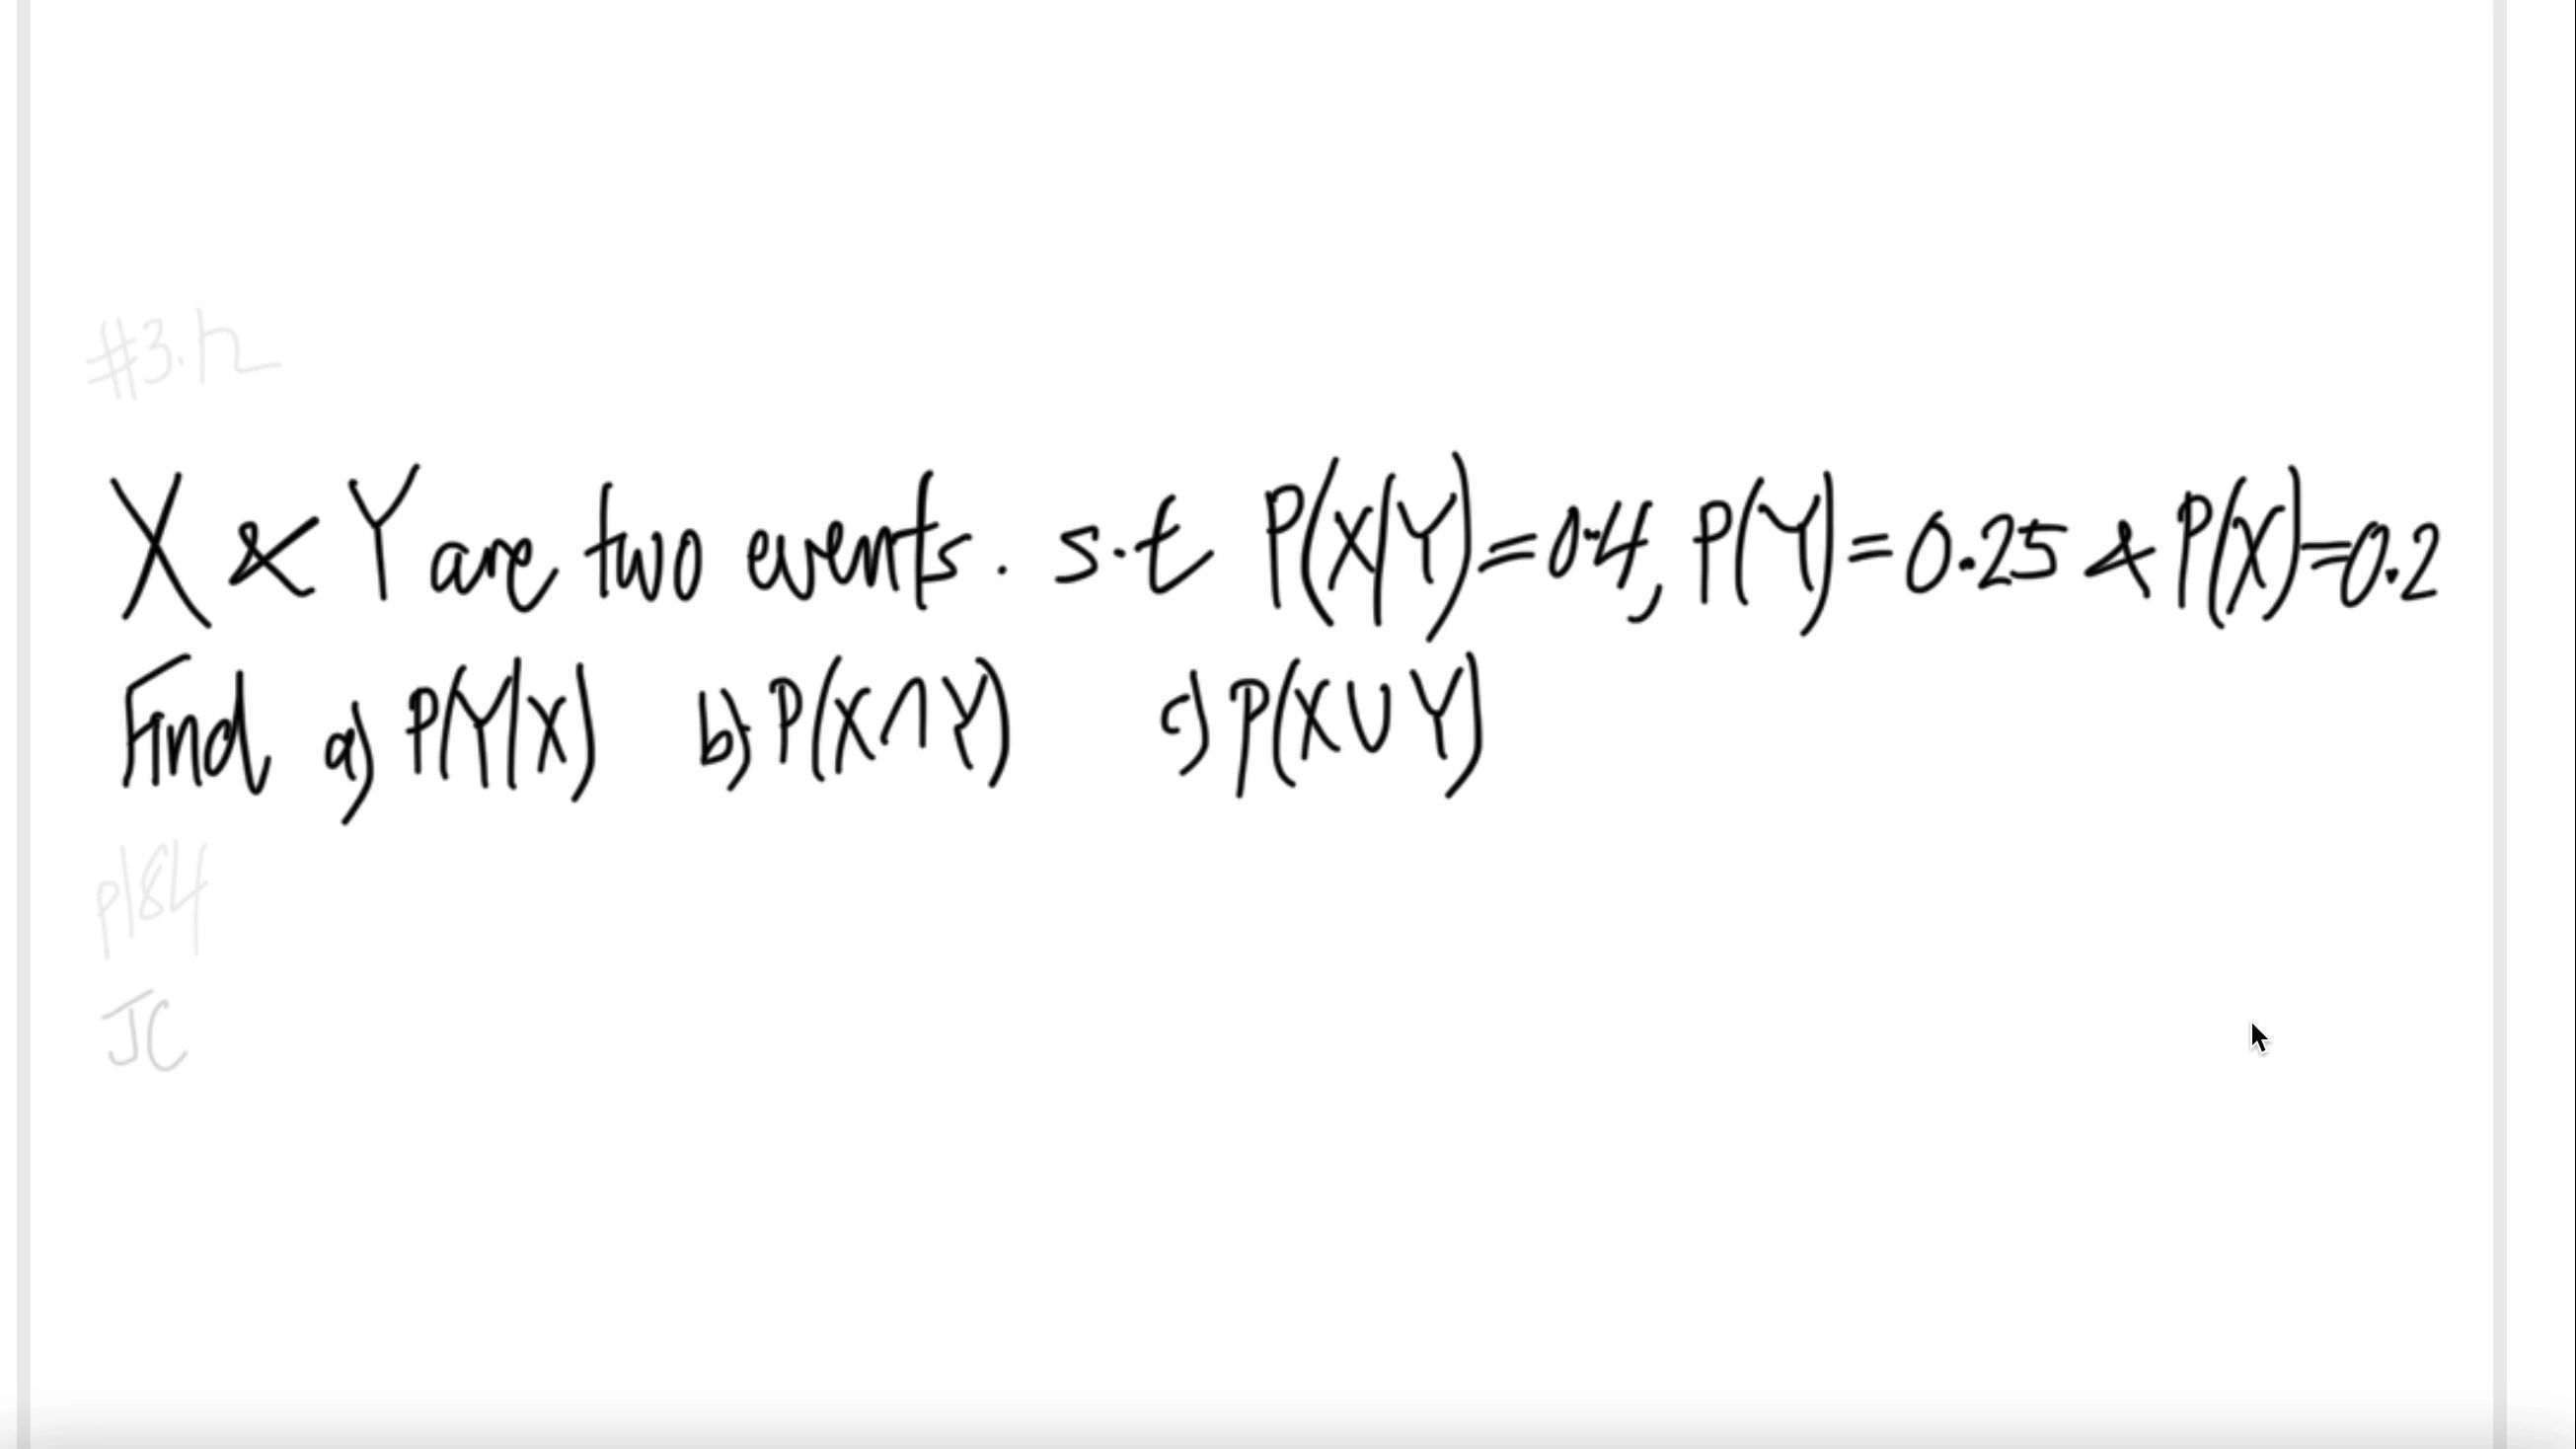 #3.12
X & Y are two events. s.t P(X|Y)=0.4, P(Y)=0.25 & P(X)=0.2
Find a) P(Y|X) b) P(X∩Y) c) P(X∪Y)
p184
JC